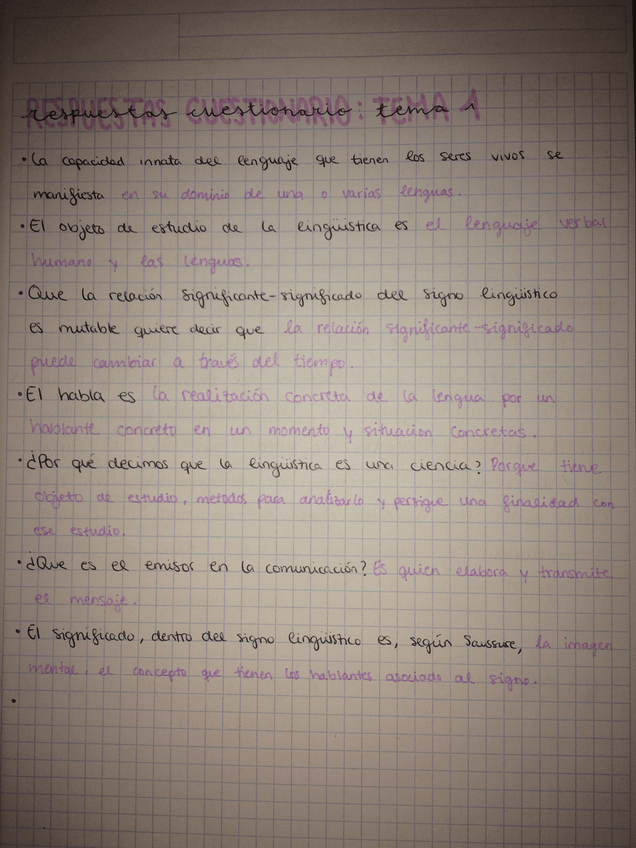 respuestas cuestionario: tema 1
• La capacidad innata del lenguaje que tienen los seres vivos se
manifiesta en su dominio de una o varias lenguas.
• El objeto de estudio de la lingüística es el lenguaje verbal
humano y las lenguas.
• Que la relación significante-significado del signo lingüístico
es mutable quiere decir que la relación significante-significado
puede cambiar a través del tiempo.
• El habla es la realización concreta de la lengua por un
hablante concreto en un momento y situación concretas.
• ¿Por qué decimos que la lingüística es una ciencia? Porque tiene
objeto de estudio, métodos para analizarlo y persigue una finalidad con
ese estudio.
• ¿Que es el emisor en la comunicación? Es quien elabora y transmite
el mensaje.
• El significado, dentro del signo lingüístico es, según Saussure, la imagen
mental, el concepto que tienen los hablantes asociado al signo.
•